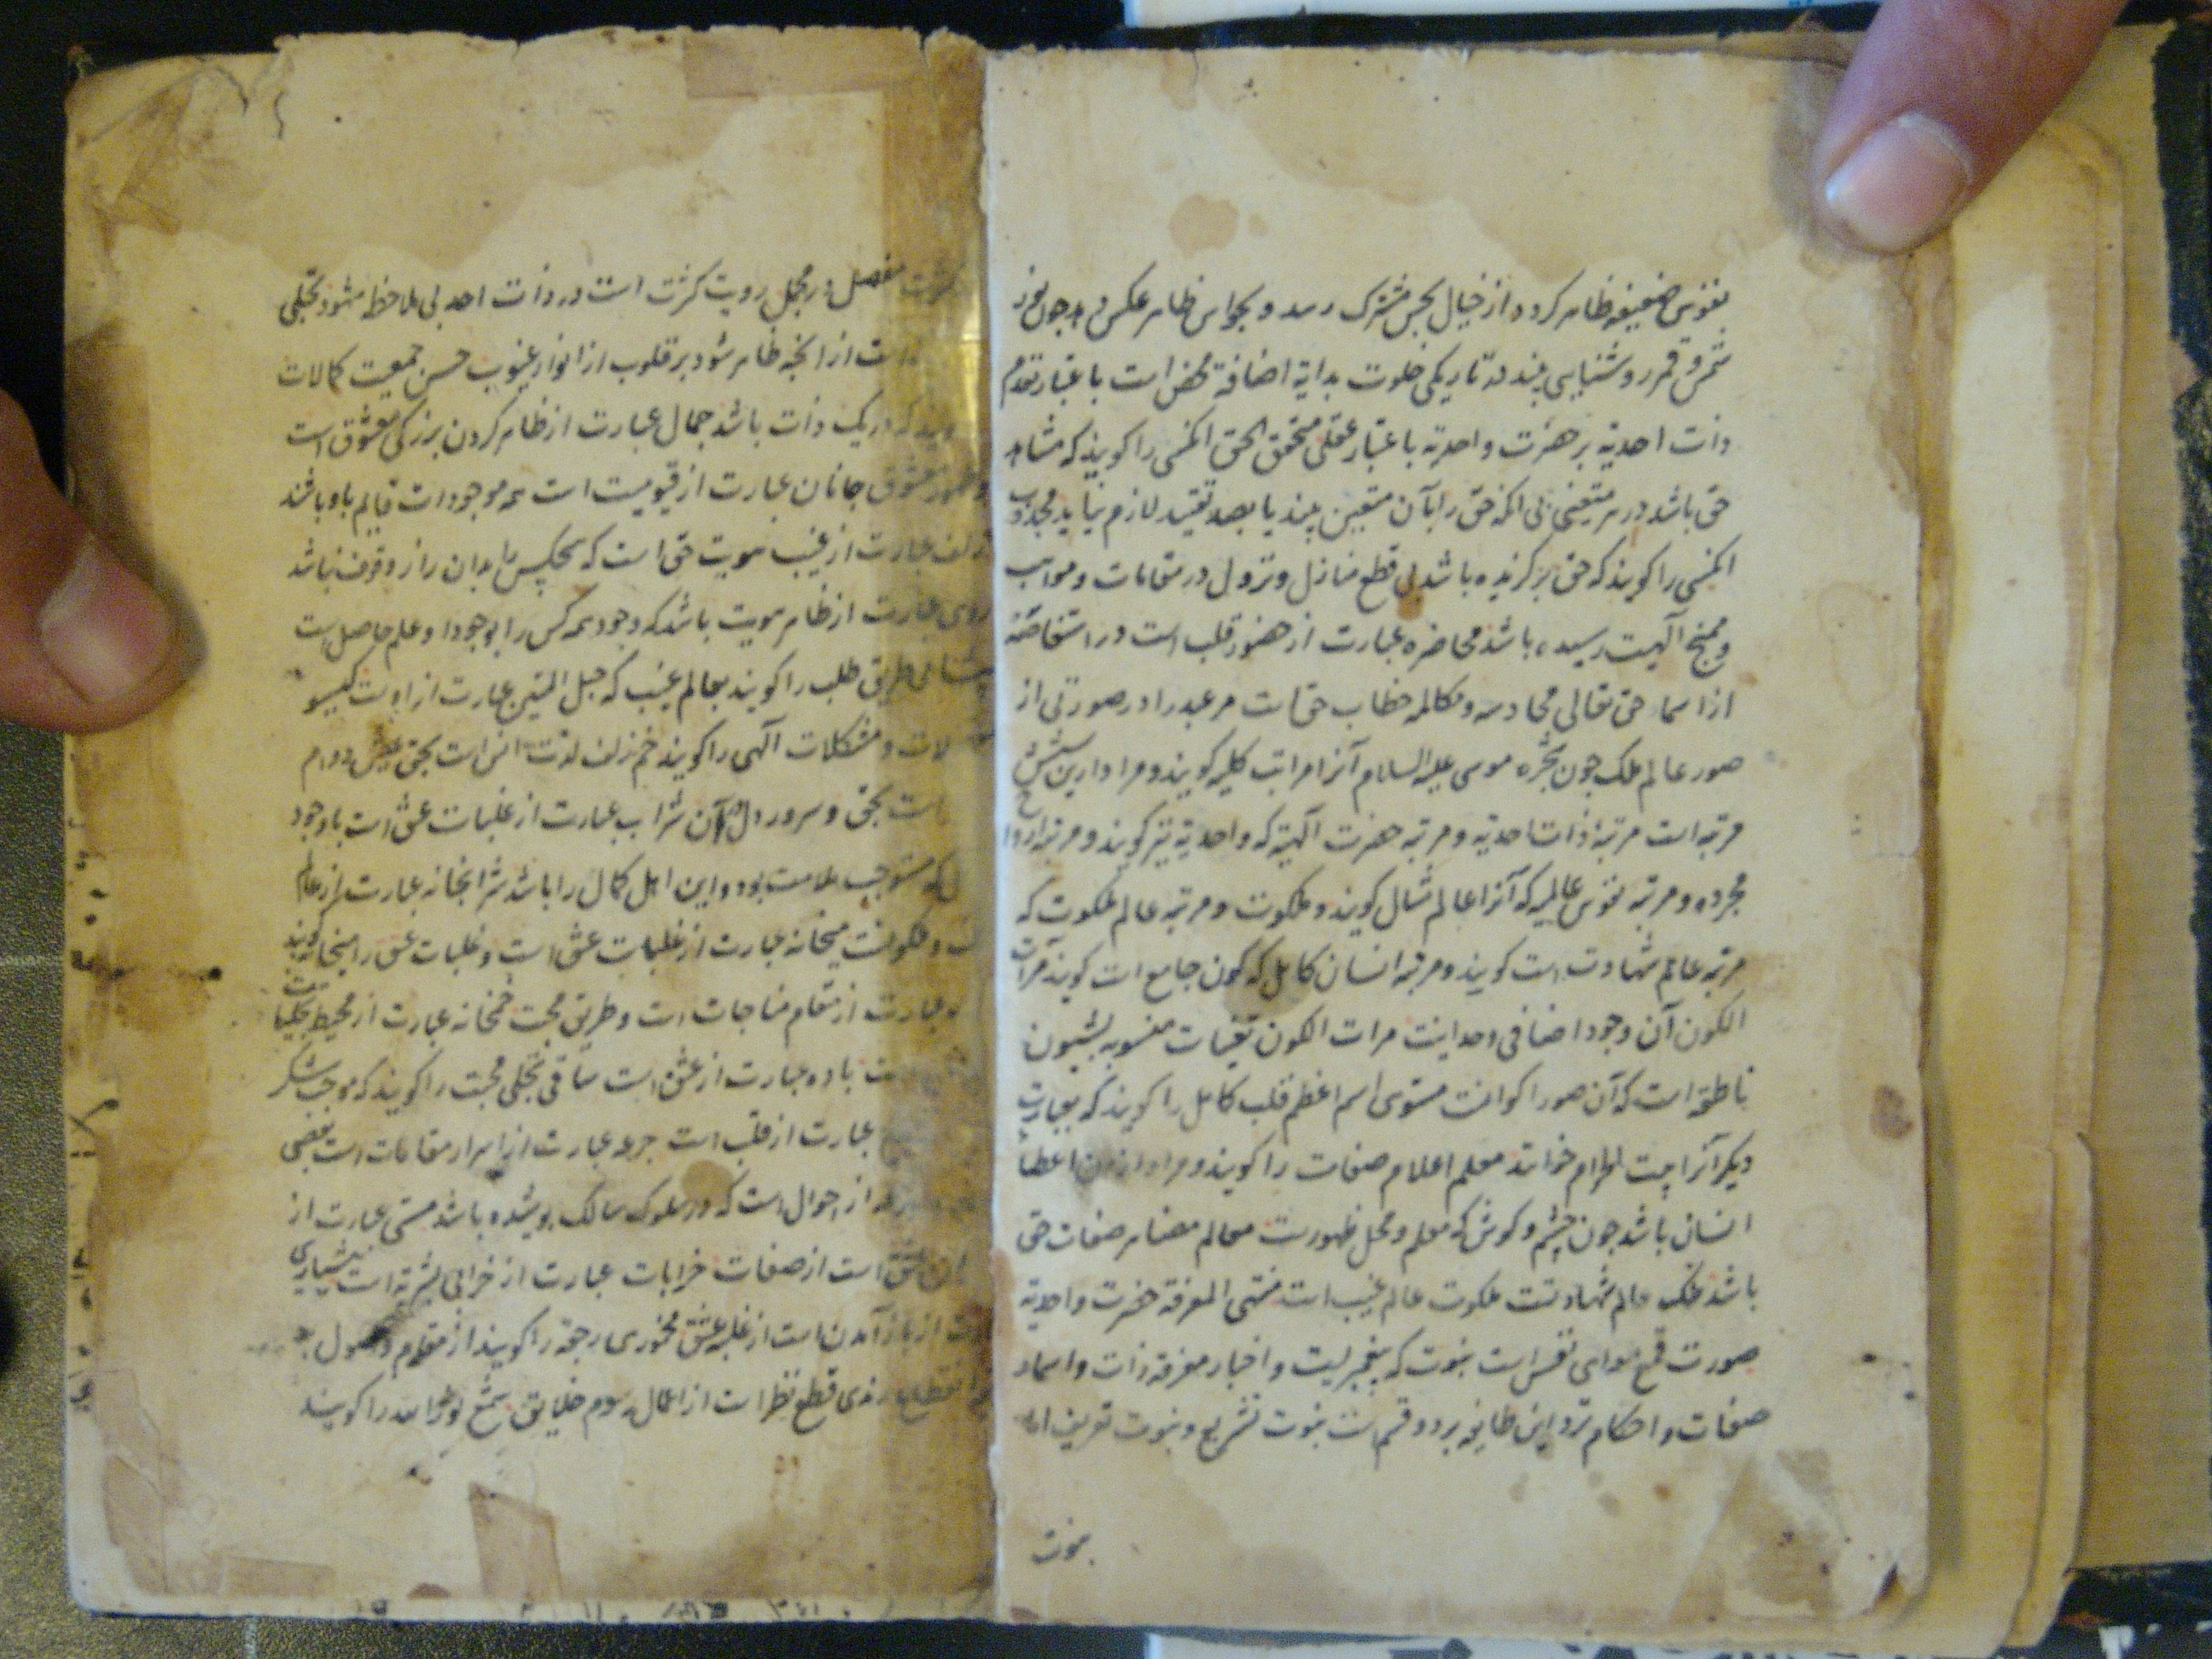 نفوس ضعیفه ظاهر کرده از خیال بحس مشترک رسد و بحواس ظاهر عکس چون نور
شمس و قمر روشنیایی بیند نه تاریکی خلوت بدایة اضافة محض است باعتبار تقدم
ذات احدیة بر حضرت واحدیة باعتبار عقلی متحقق بالحق انکسی را کویند که مشاهد
حق باشد در هر متعینی بی انکه حق را بآن متعین بیند یا بصد تقیید لازم نیاید مجذوب
انکسی را کویند که حق برکزیده باشد بی قطع منازل و نزول در مقامات و مواهب
الهیت رسیده باشد محاضره عبارت از حضور قلب است در استفاضه
از اسماء حق تعالی محادثه و مکالمه خطاب حق است مر عبد را در صورتی از
صور عالم ملک چون شجره موسی علیه السلام آنرا مراتب کلیه کویند و مراد ازین شش
مرتبه است مرتبۀ ذات احدیة و مرتبه حضرت الهیة که واحدیة نیز کویند و مرتبه ارواح
مجرده و مرتبه نفوس عالمیه که آنرا عالم مثال کویند و ملکوت و مرتبه عالم ملکوت که
مرتبه عالم شهادت است کویند و مرتبه انسان کامل که کون جامع است کویند مرآت
الکون آن وجود اضافی وحدانیت مرات الکون تعینات منسوبه بشیون
ناطقه است که آن صور اکوانست مستوی اسم اعظم قلب کامل را کویند که بعبارت
دیکر آنرا بیت الحرام خوانند معلم اعلام صفات را کویند و مراد از آن اعضأ
انسان باشد چون چشم و کوش که معلم و محل ظهورست معالم مضاهر صفات حق
باشد ملک عالم شهادتست ملکوت عالم غیب است منتهی المعرفة حضرت واحدیة
صورت قمع هوای نفس است نبوت که پیغمبریست و اخبار معرفة ذات و اسماء
صفات و احکام نزد این طایفه بر دو قسم است نبوت تشریع و نبوت تعریف اما
نبوت
کثرت مفصل در مجمل رویت کثرت است در ذات احد بی ملاحظه شهود تجلی
است از آنچه ظاهر شود بر قلوب از انوار غیوب حسن جمعیت کمالات
کویند که در یک ذات باشد جمال عبارت از ظاهر کردن بزرکی معشوق است
معشوق جانان عبارت از قیومیت است همه موجودات قایم باو باشند
زلف عبارت از غیب هویت حق است که هیچکس را بدان راز وقوف نباشد
روی عبارت از ظاهر هویت باشد که وجود همه کس را بوجود او علم حاصل است
طریق طلب را کویند بعالم غیب که حبل المتین عبارت از اوست کیسو
و مشکلات الهی را کویند خم زلف لذت انس است بحق عیش دوام
است بحق و سرور دل در آن شراب عبارت از غلبات عشق است با وجود
که مستوجب ملامت بود و این اهل کمال را باشد شرابخانه عبارت از عالم
ملکوتست میخانه عبارت از غلبات عشق است و غلبات عشق را میخانه کویند
عبارت از مقام مناجات است و طریق محبت خمخانه عبارت از محیط تجلیات
باده عبارت از عشق است ساقی تجلی محبت را کویند که موجب شکر
عبارت از قلب است جرعه عبارت از اسرار مقامات است بعضی
از احوال است که در سلوک سالک پوشیده باشد مستی عبارت از
عشق است از صفات خرابات عبارت از خرابی بشریة است هشیاری
از باز آمدن است از غلبه عشق مخموری رجعة را کویند از مقام وصول
انقطاع رندی قطع نظر است از اعمال رسوم خلایق شمع نور الله را کویند